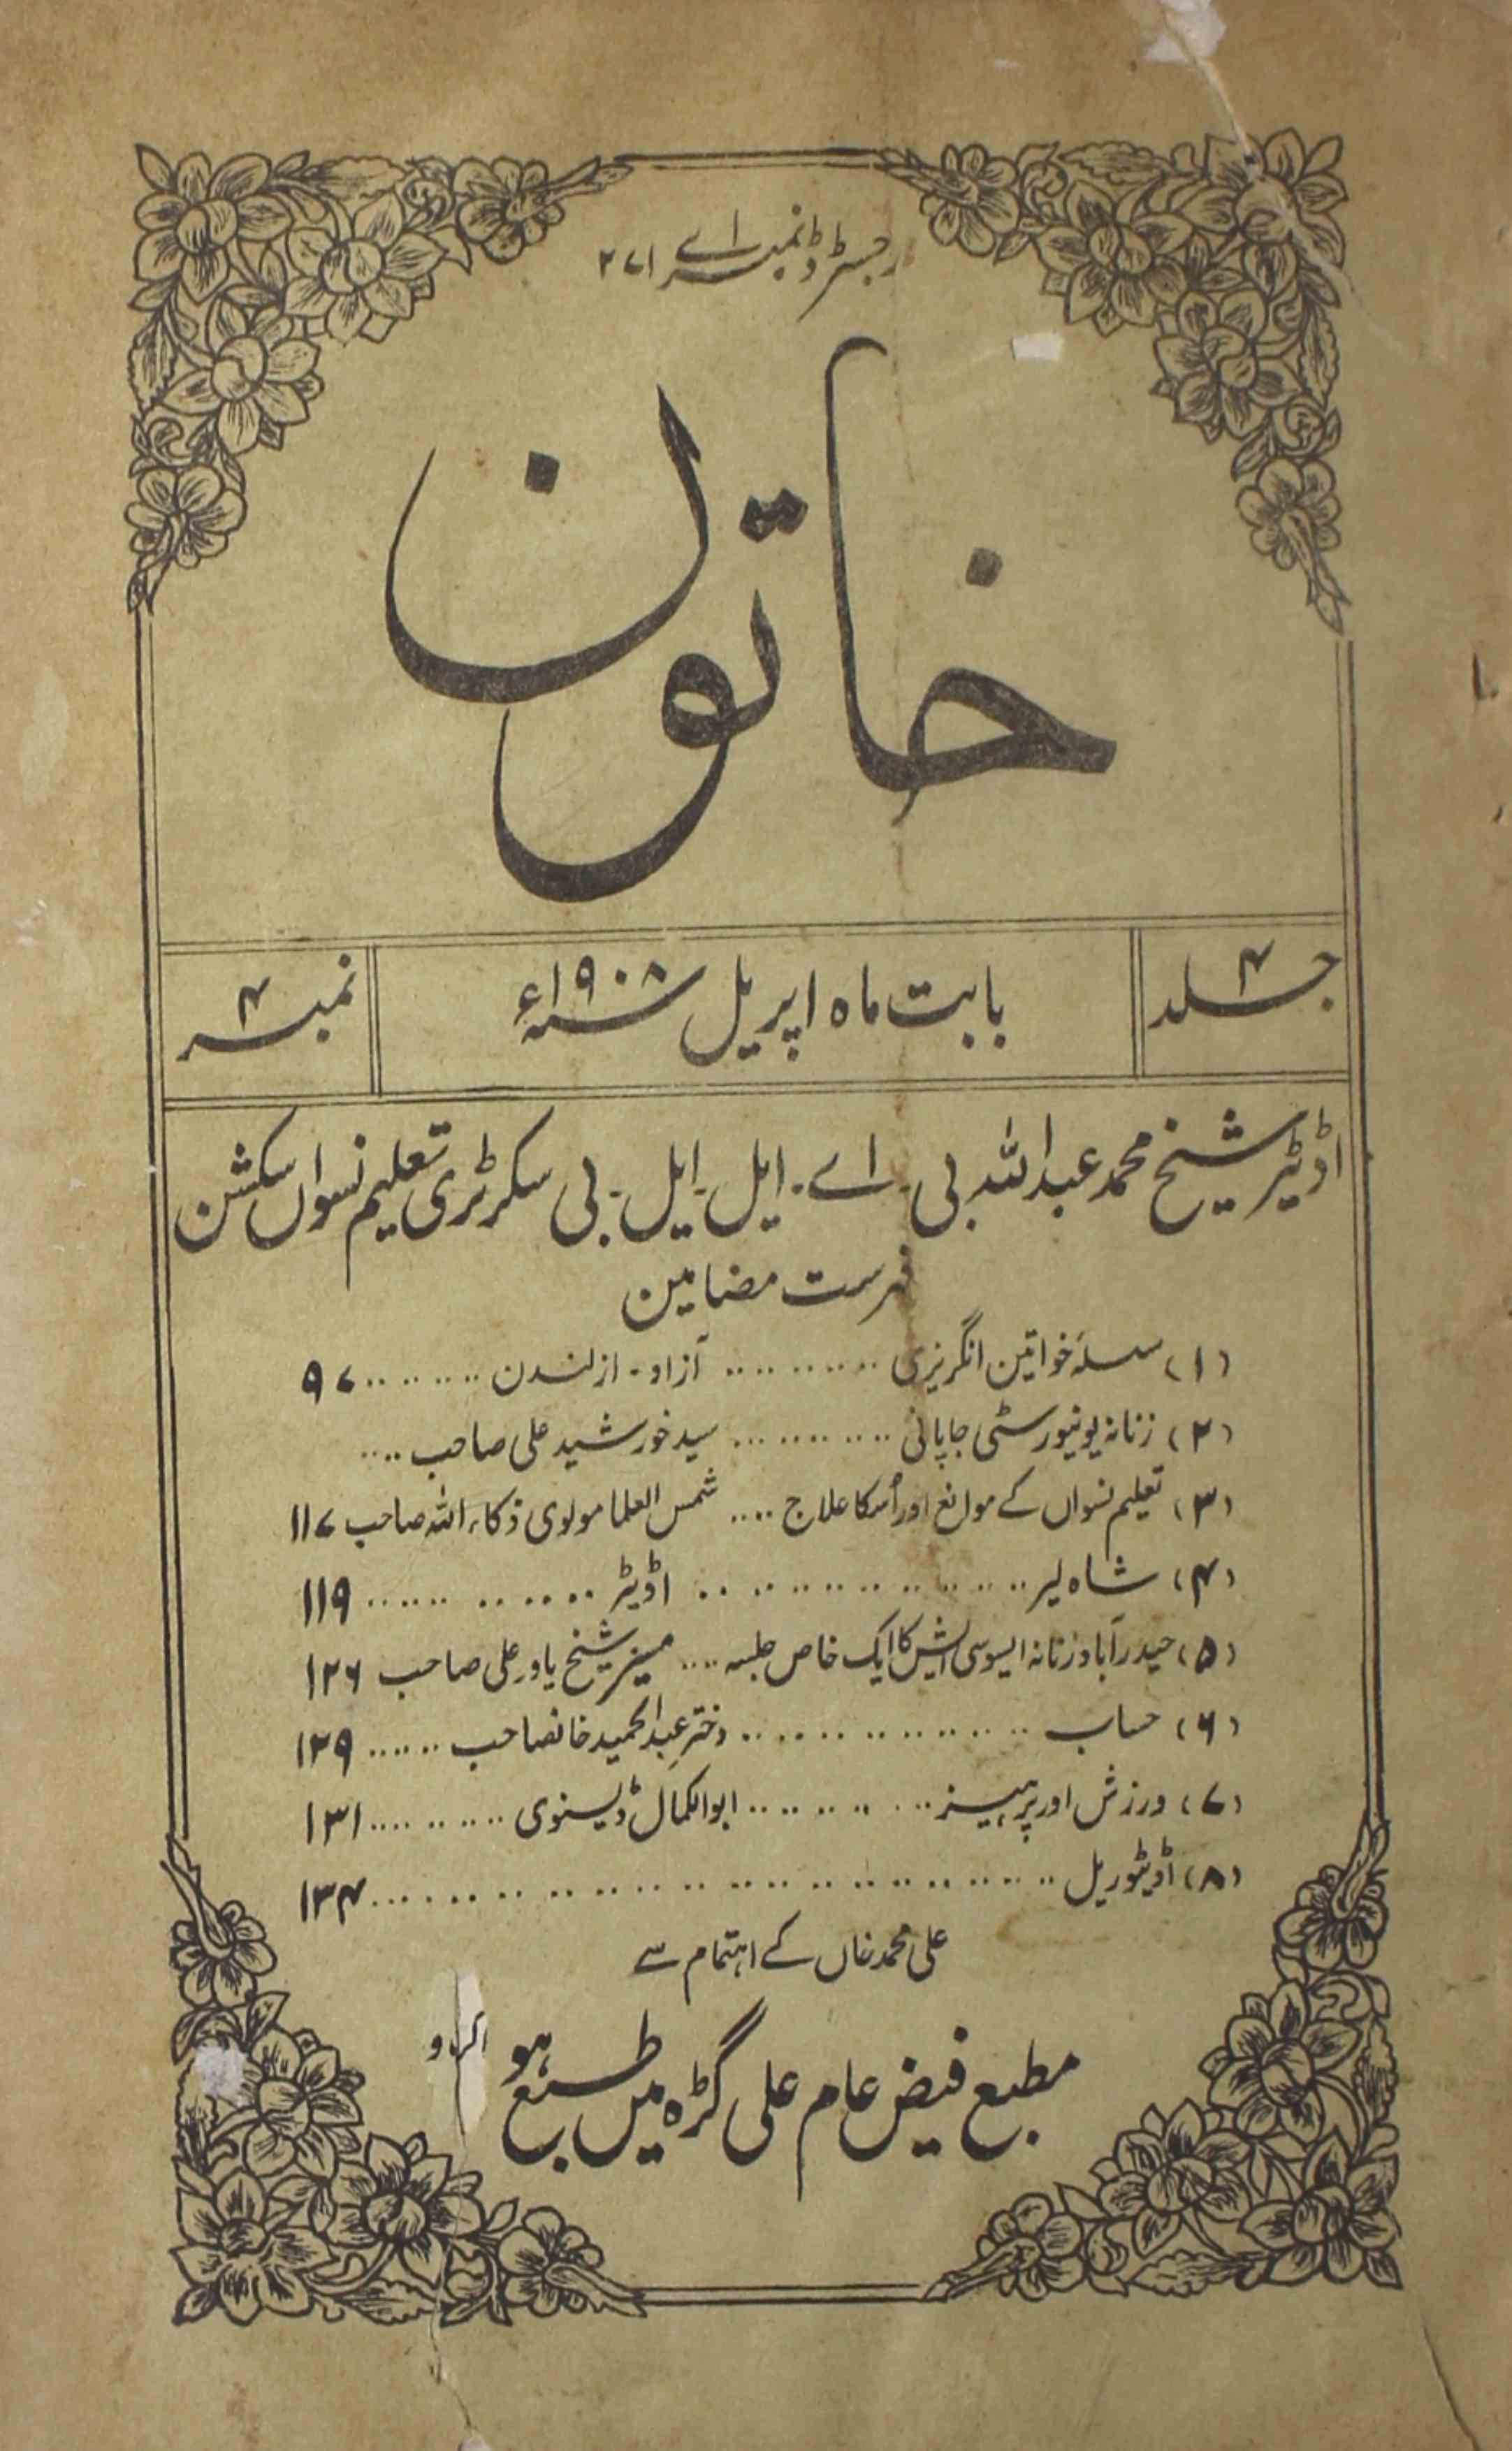 رجسٹرڈ نمبر اے ۲۷۱
خاتون
جلد ۴
بابت ماہ اپریل سنہ ۱۹۰۸ء
نمبر ۴
اڈیٹر شیخ محمد عبداللہ بی - اے - ایل - ایل - بی سکرٹری تعلیم نسواں سکشن
فہرست مضامین
(۱) سلسلۂ خواتین انگریزی .......... آزاد - از لندن .......... ۹۷
(۲) زنانہ یونیورسٹی جاپانی .......... سید خورشید علی صاحب ....
(۳) تعلیم نسواں کے موانع اور اُسکا علاج .... شمس العلما مولوی ذکاء اللہ صاحب ۱۱۷
(۴) شاہ لیر .......... اڈیٹر .......... ۱۱۹
(۵) حیدرآباد زنانہ ایسوسی ایشن کا ایک خاص جلسہ .... مسیز شیخ یاور علی صاحب ۱۲۶
(۶) حساب .......... دختر عبدالحمید خانصاحب ...... ۱۲۹
(۷) ورزش اور پرہیز .......... ابوالکمال ڈیسنوی .......... ۱۳۱
(۸) اڈیٹوریل .......... ۱۳۴
علی محمد خاں کے اہتمام سے
مطبع فیض عام علی گڑہ میں طبع ہو